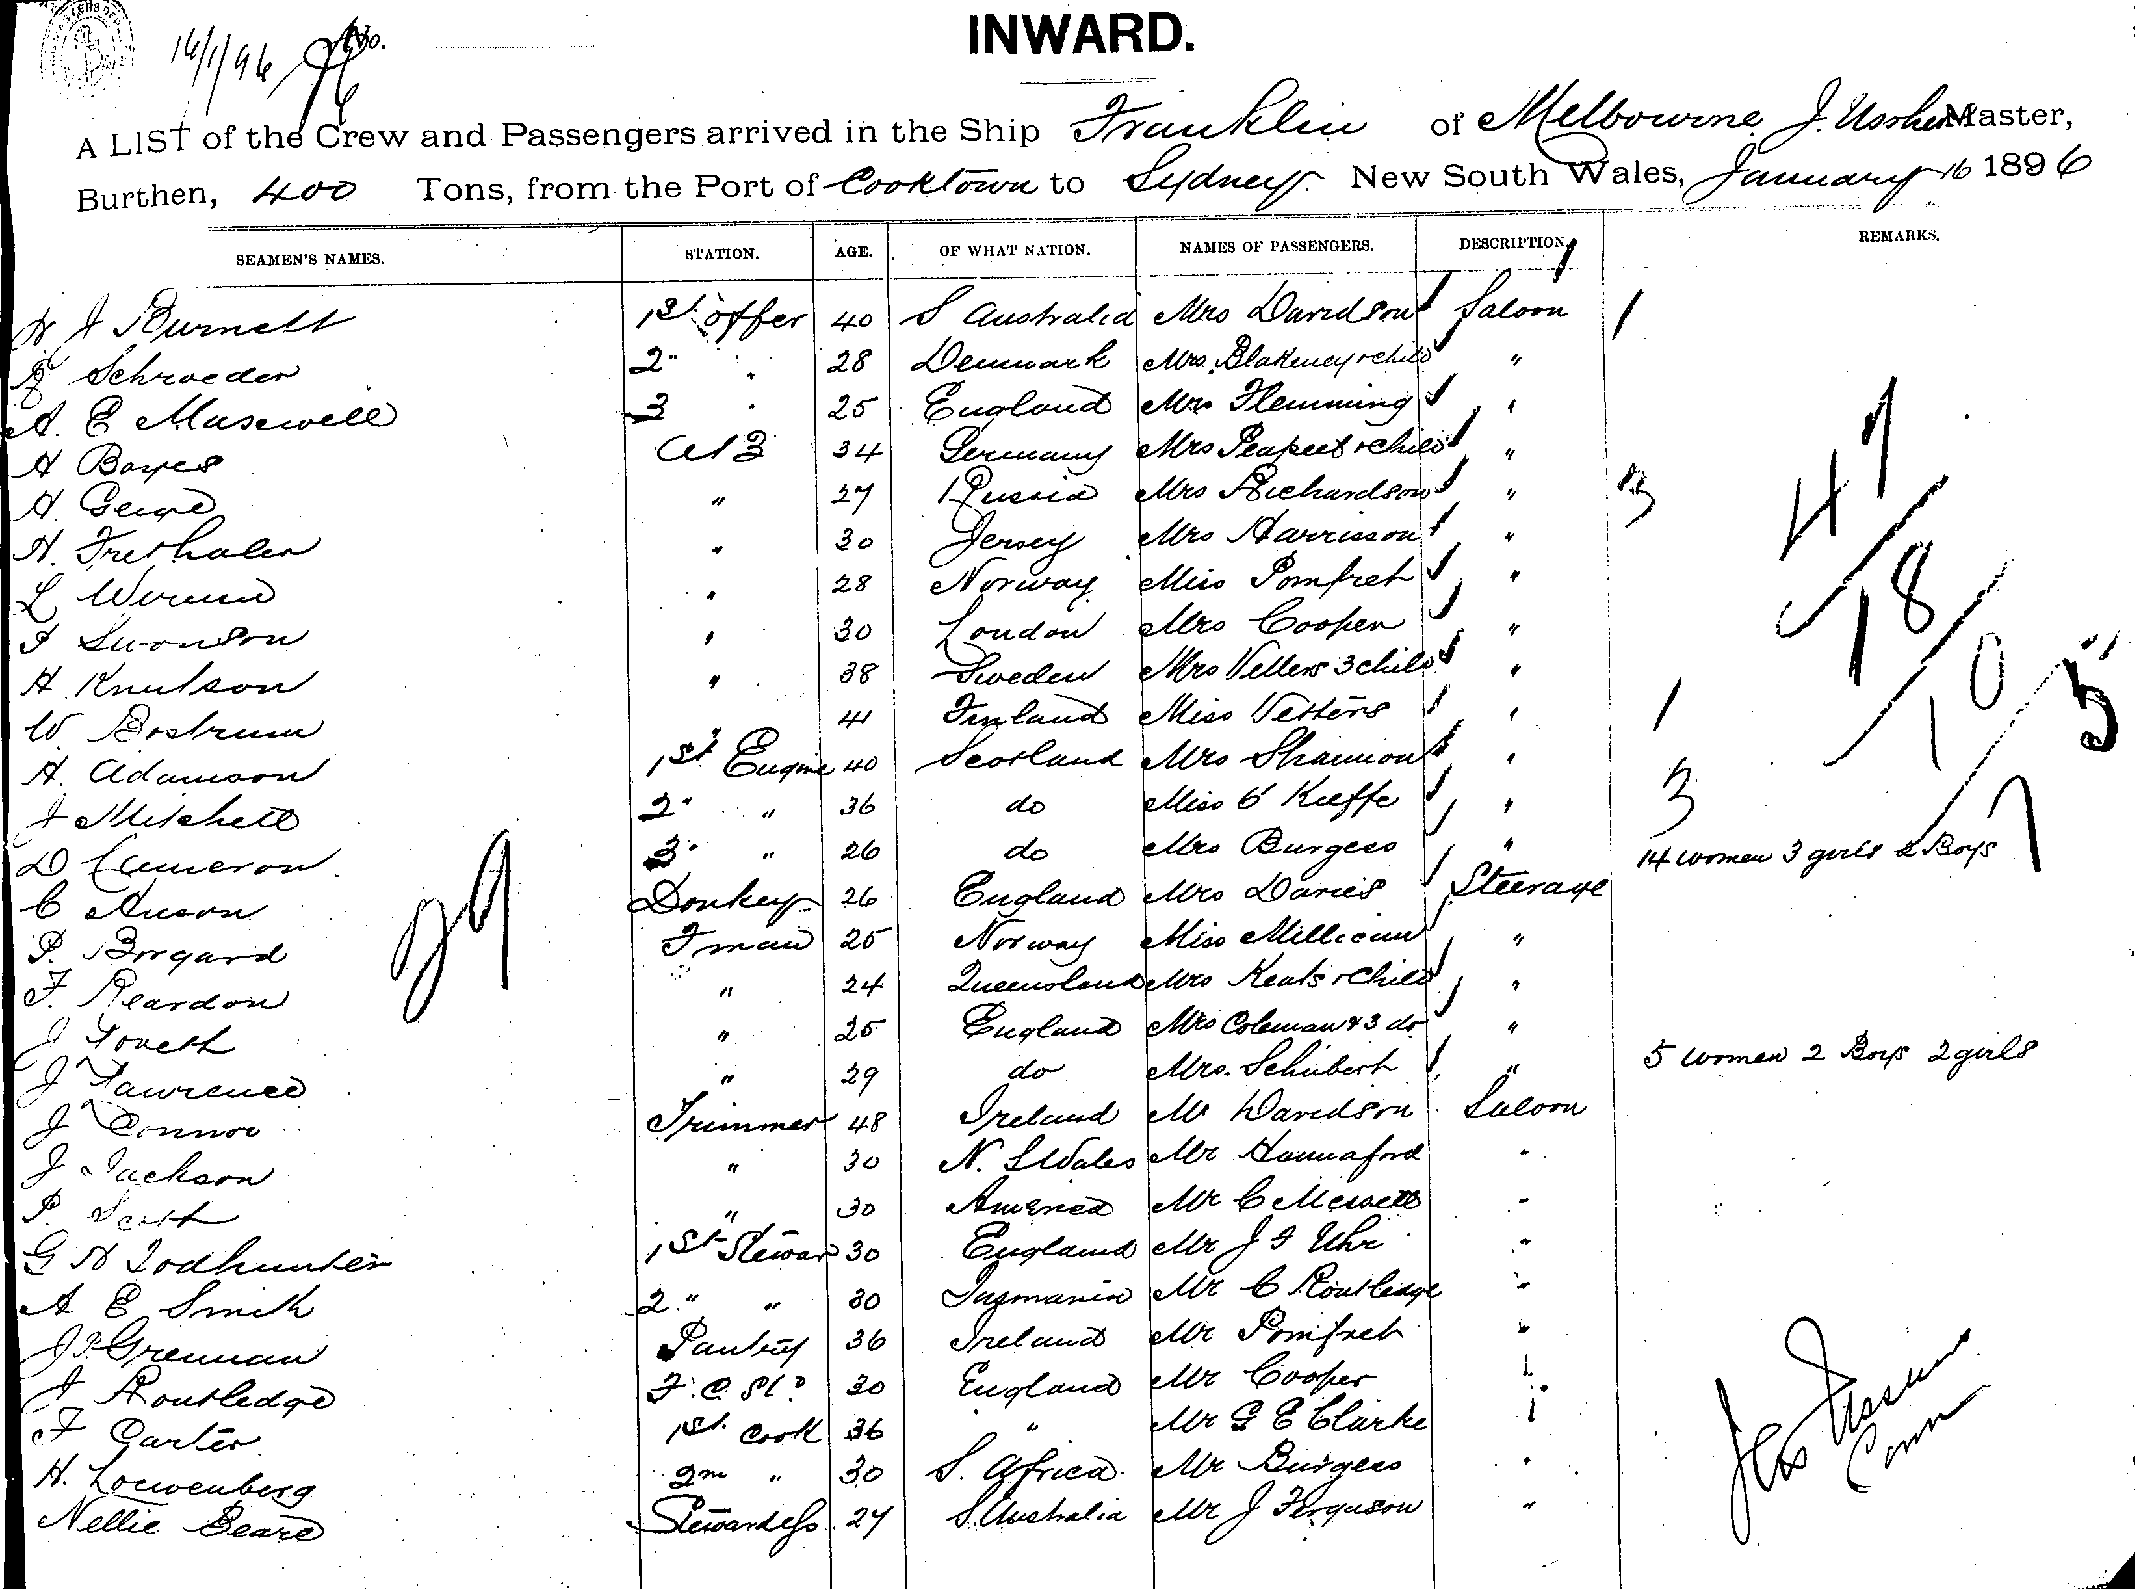 16/1/96
INWARD.
A LIST of the Crew and Passengers arrived in the Ship Franklin of Melbourne J. Ussher Master,
Burthen, 400 Tons, from the Port of Cooktown to Sydney. New South Wales, January 16 1896
SEAMEN'S NAMES. STATION. AGE. OF WHAT NATION. NAMES OF PASSENGERS. DESCRIPTION. REMARKS.
J Burnett 1st offer 40 S Australia Mrs Davidson Saloon 1
Schroeder 2" 28 Denmark Mrs. Blakeney + child "
A. E Masewell 3 25 England Mr Flemming "
H Boyes AB 34 Germany Mrs Peapeet + child "
H. " 27 Russia Mrs Richardson " 3
H. Trethalen " 30 Jersey Mrs Harrisson "
L " 28 Norway Miss Pomfret "
Swonson " 30 London Mrs Cooper "
H Knutson " 38 Sweden Mrs Vetters 3 child "
W. Bostrum 41 Finland Miss Vetters " 1
A. Adamson 1st Engine 40 Scotland Mrs Shannon "
J Mitchell 2" " 36 do Miss O'Kieffe " 3
D Cameron 3" " 26 do Mrs Burgess " 14 women 3 girls 2 Boys
C Anson Donkey 26 England Mrs Davies Steerage
P. Borgard Fman 25 Norway Miss Millican "
F. Reardon " 24 Queensland Mrs Keats + Child "
J " 25 England Mrs Coleman & 3 do "
J Lawrence " 29 do Mrs. Schubert " 5 women 2 Boys 2 girls
J Connor Trimmer 48 Ireland Mr Davidson Saloon
J Jackson " 30 N. S Wales Mr Hannaford "
P. Scott " 30 America Mr C "
G H Todhunter 1st Steward 30 England Mr J F Uhr "
A E Smith 2" " 30 Tasmania Mr C Routledge "
J P Grennan Pantry 36 Ireland Mr Pomfret "
J Routledge F. C. St. 30 England Mr Cooper "
F Carter 1st Cook 36 " Mr G E Clarke "
H. Loewenberg 2nd " 30 S. Africa Mr Burgess "
Nellie Beare Stewardess 27 S. Australia Mr J Ferguson "
29
47
18
10
5
7